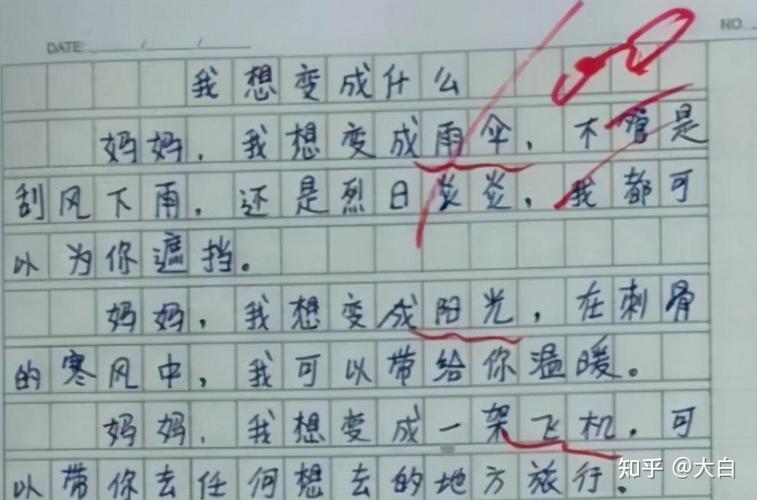 DATE / /
NO.
我想变成什么
妈妈，我想变成雨伞，不管是
刮风下雨，还是烈日炎炎，我都可
以为你遮挡。
妈妈，我想变成阳光，在刺骨
的寒风中，我可以带给你温暖。
妈妈，我想变成一架飞机，可
以带你去任何想去的地方旅行。
知乎 @大白